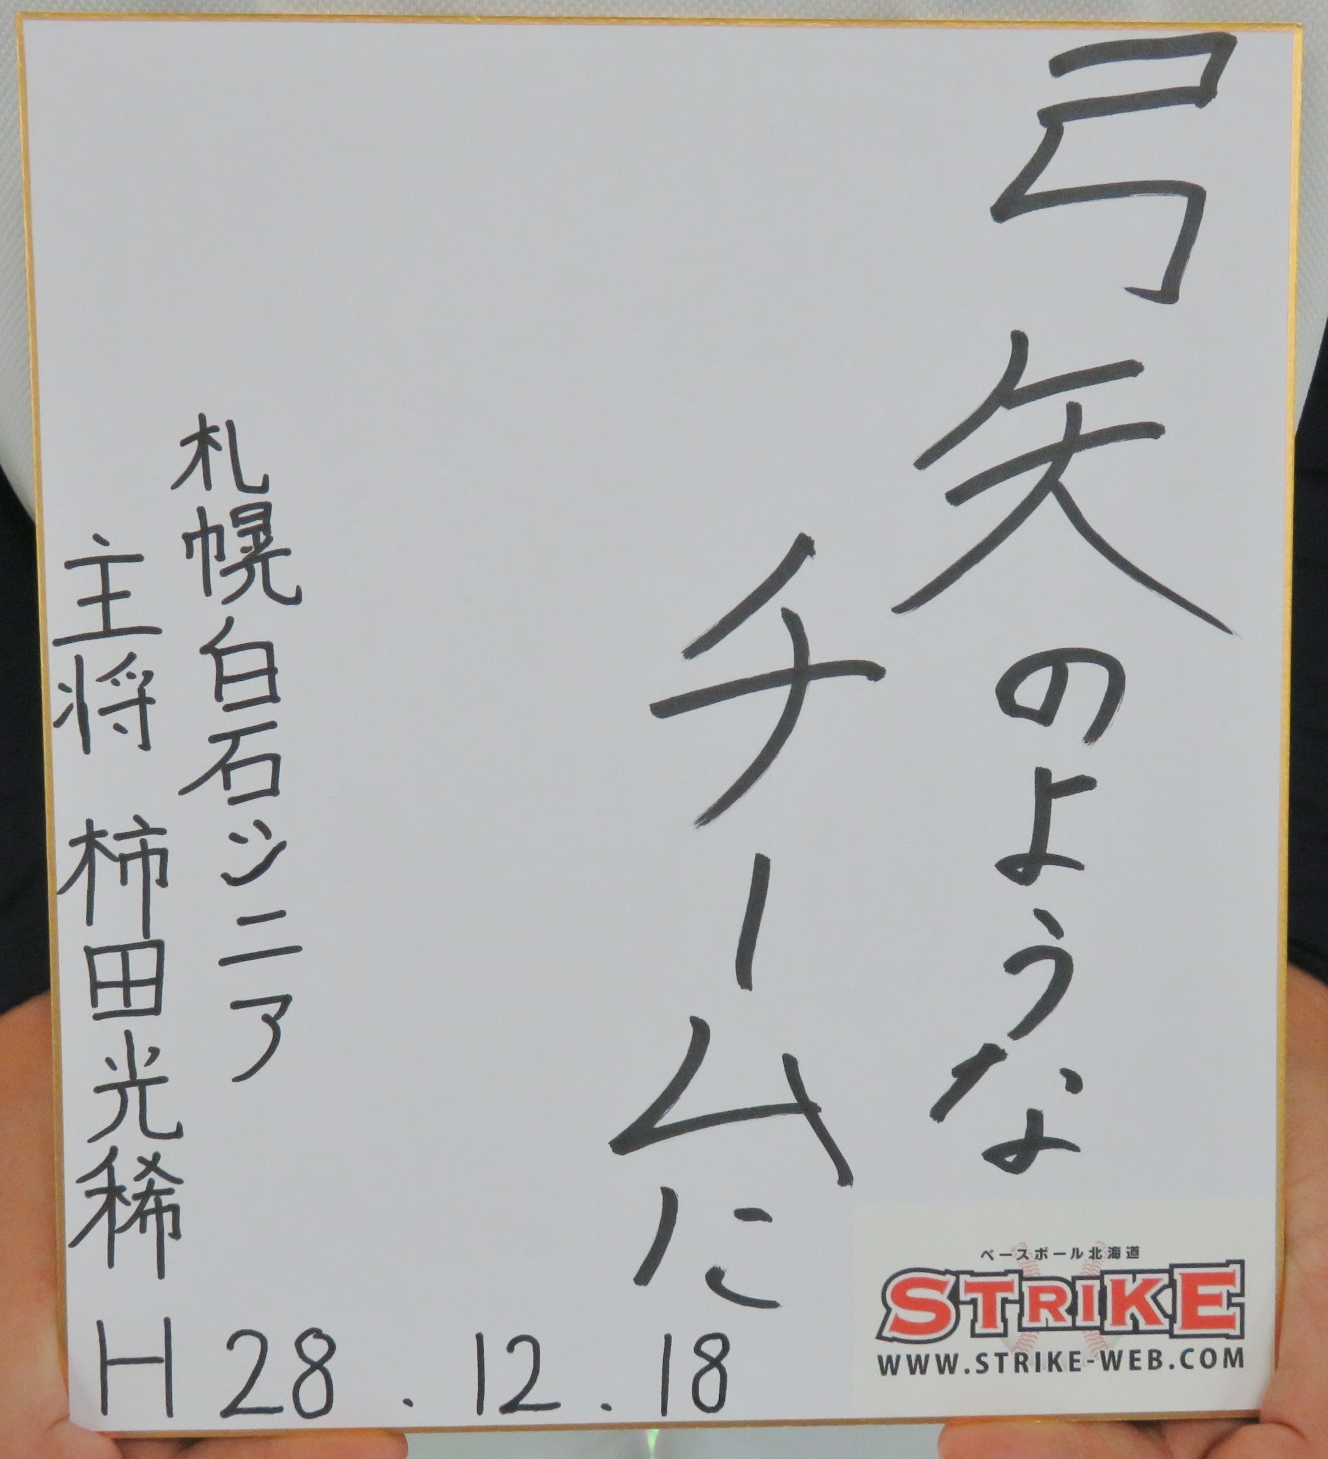 弓矢のような
チームに
札幌白石シニア
主将 柿田光稀
H28.12.18
ベースボール北海道
STRIKE
WWW.STRIKE-WEB.COM